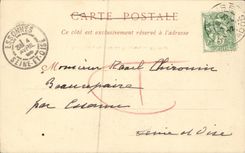 CARTE POSTALE
Ce côté est exclusivement réservé à l'adresse
ESSONNES
SEINE-ET-OISE
Monsieur Raoul
Beaurepaire
par Essonne
Seine et Oise